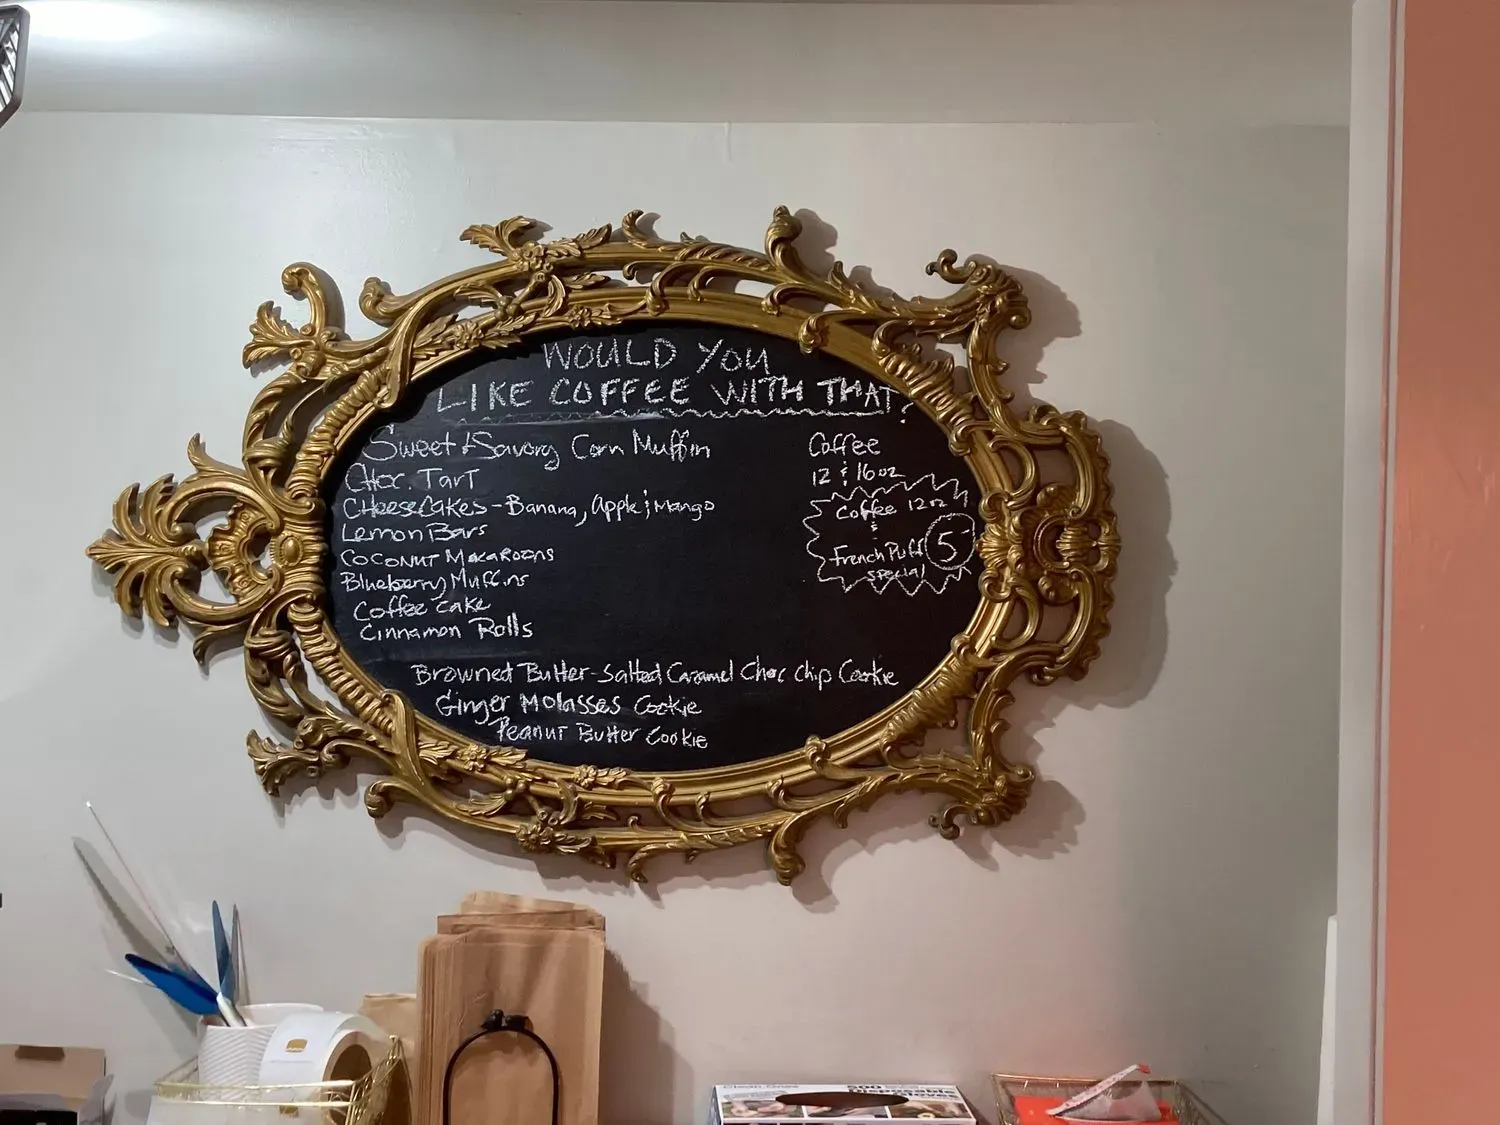 WOULD YOU
LIKE COFFEE WITH THAT?
Sweet & Savory Corn Muffin
Choc. Tart
CHeeseCakes - Banana, Apple & Mango
Lemon Bars
Coconut Macaroons
Blueberry Muffins
Coffee Cake
Cinnamon Rolls
Browned Butter-Salted Caramel Choc Chip Cookie
Ginger Molasses Cookie
Peanut Butter Cookie
Coffee
12 & 16 oz
Coffee 12 oz
&
French Puff 5
special
500
Disposable
Gloves